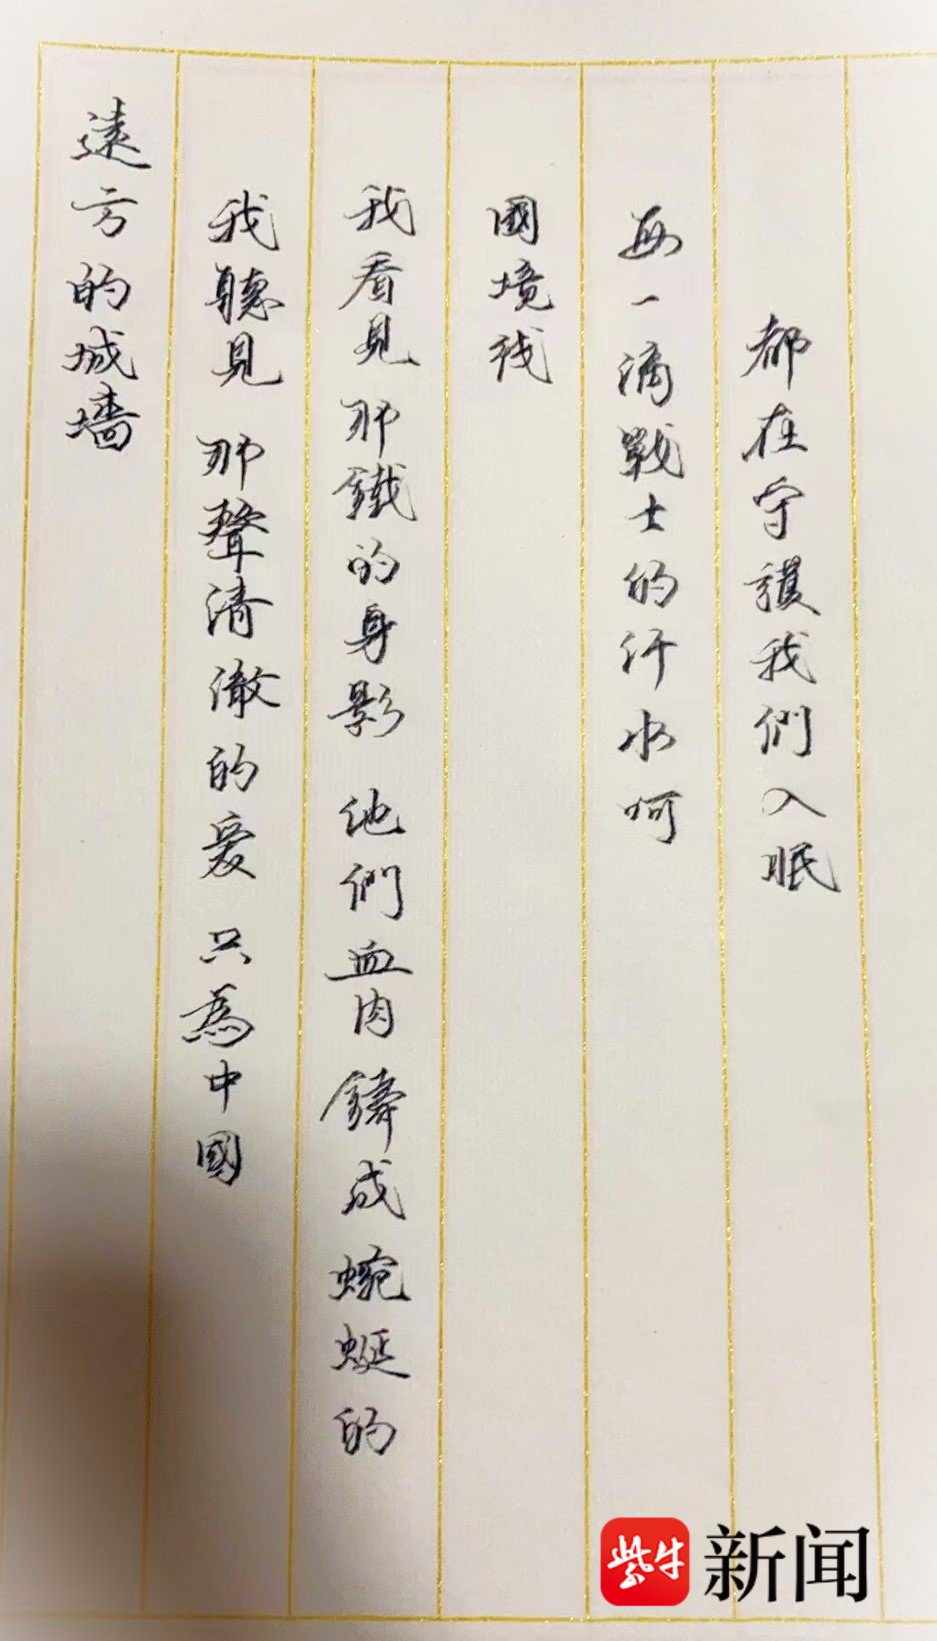 遠方的城墻
我聽見 那聲清澈的爱 只為中國
我看見 那鐵的身影 他們血肉鑄成蜿蜒的
國境线
每一滴戰士的汗水呵
都在守護我們入眠
紫牛 新闻